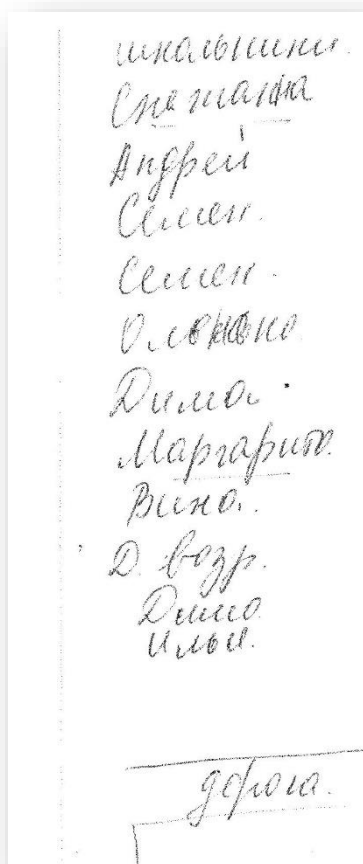 школьники.
Снежанна
Андрей
Семен.
Семен.
Дима.
Маргарита.
Вика.
Д. возр.
Дима
Илья.
дорога.